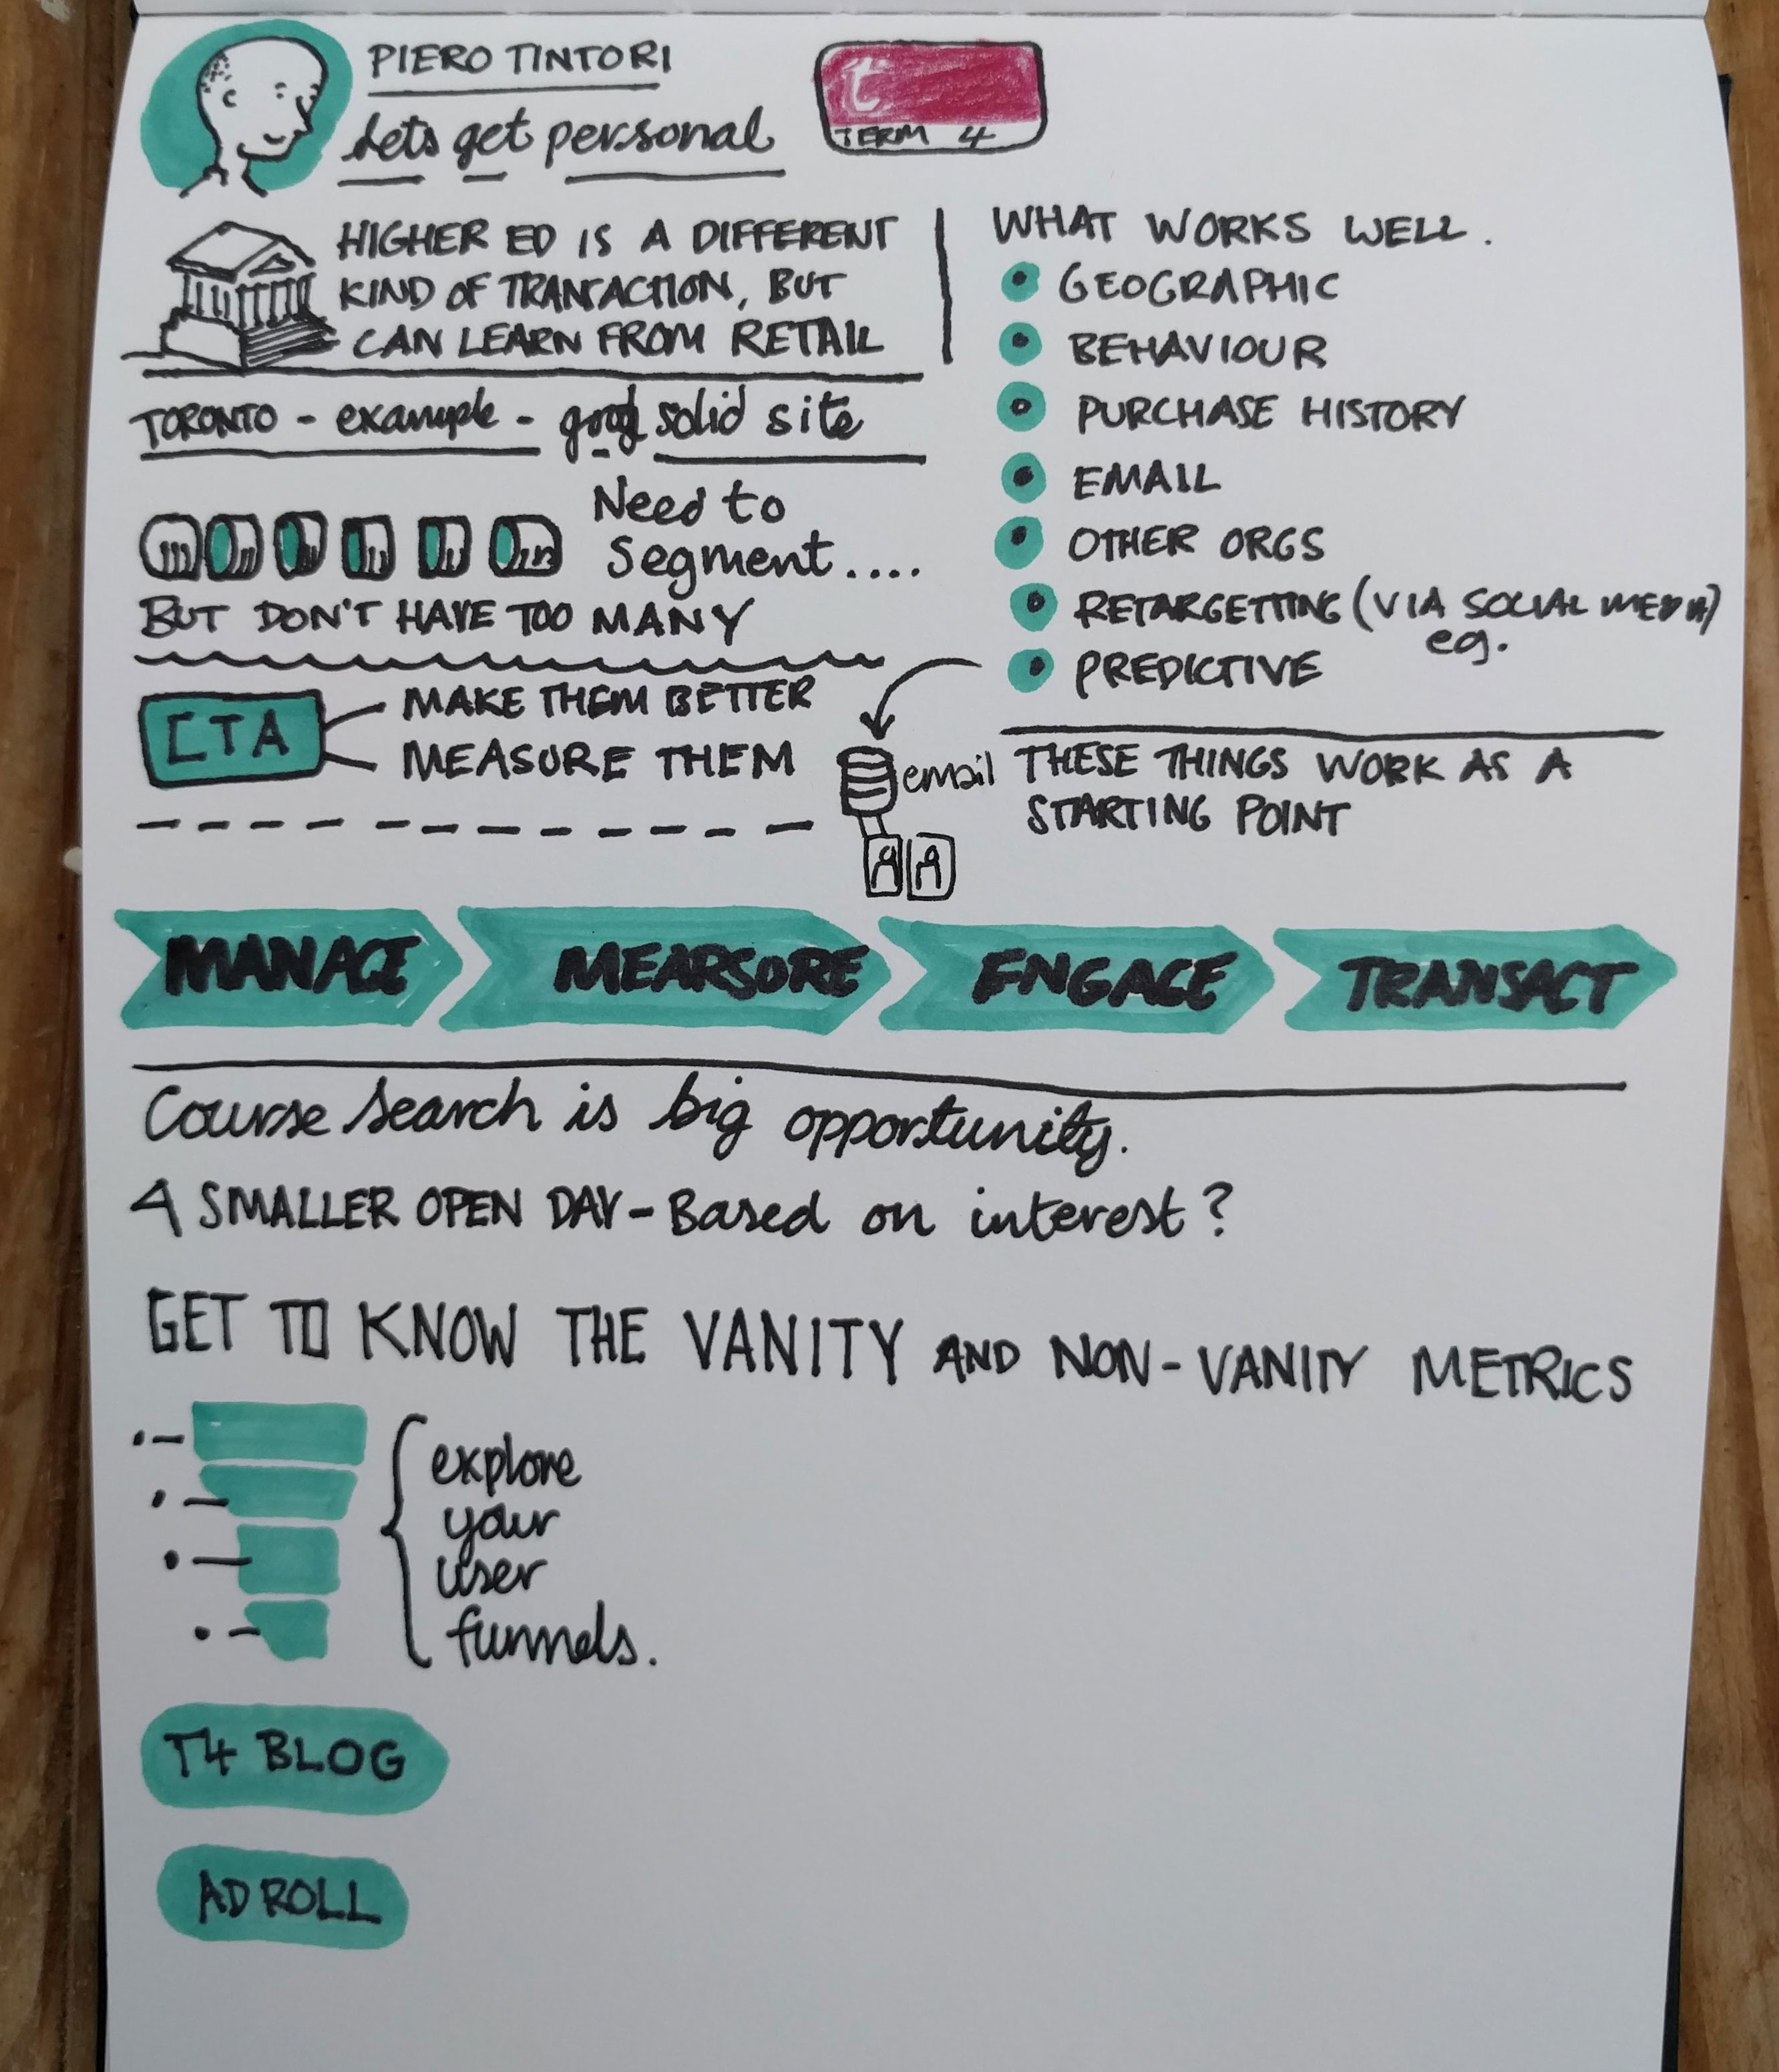 PIERO TINTORI
Lets get personal
t
TERM 4
HIGHER ED IS A DIFFERENT
KIND OF TRANSACTION, BUT
CAN LEARN FROM RETAIL
TORONTO - example - good solid site
Need to
Segment....
BUT DON'T HAVE TOO MANY
CTA
MAKE THEM BETTER
MEASURE THEM
WHAT WORKS WELL.
GEOGRAPHIC
BEHAVIOUR
PURCHASE HISTORY
EMAIL
OTHER ORGS
RETARGETTING (VIA SOCIAL MEDIA)
eg.
PREDICTIVE
email
THESE THINGS WORK AS A
STARTING POINT
MANAGE
MEARSURE
ENGAGE
TRANSACT
Course search is big opportunity.
4 SMALLER OPEN DAY - Based on interest?
GET TO KNOW THE VANITY AND NON-VANITY METRICS
explore
your
user
funnels.
T4 BLOG
AD ROLL